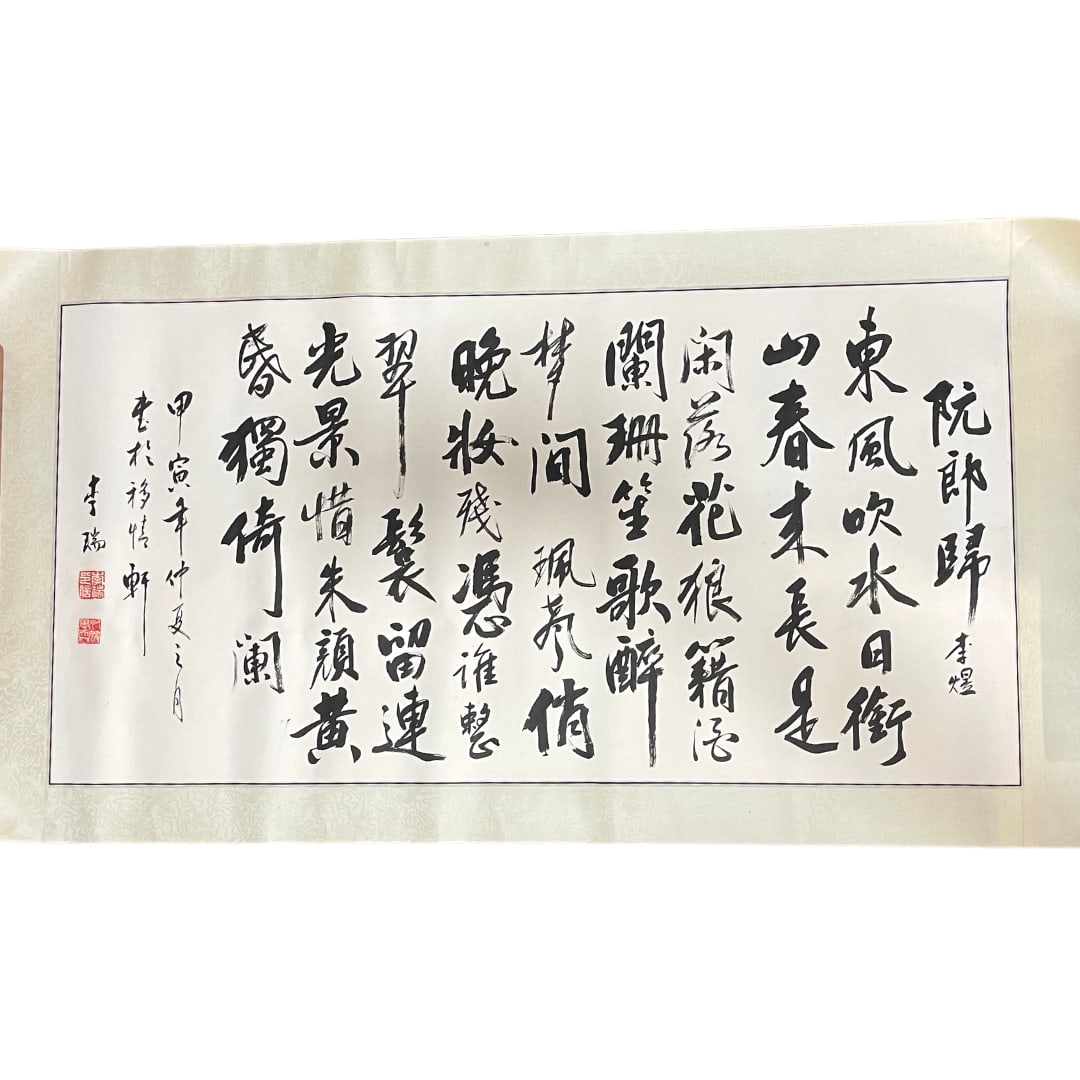 阮郎歸 李煜
東風吹水日銜
山春来長是
闲落花狼籍酒
闌珊笙歌醉
梦间珮声悄
晚妆残憑谁整
翠鬟留連
光景惜朱顔黄
昏獨倚阑
甲寅年仲夏之月
书於移情軒
李瑞